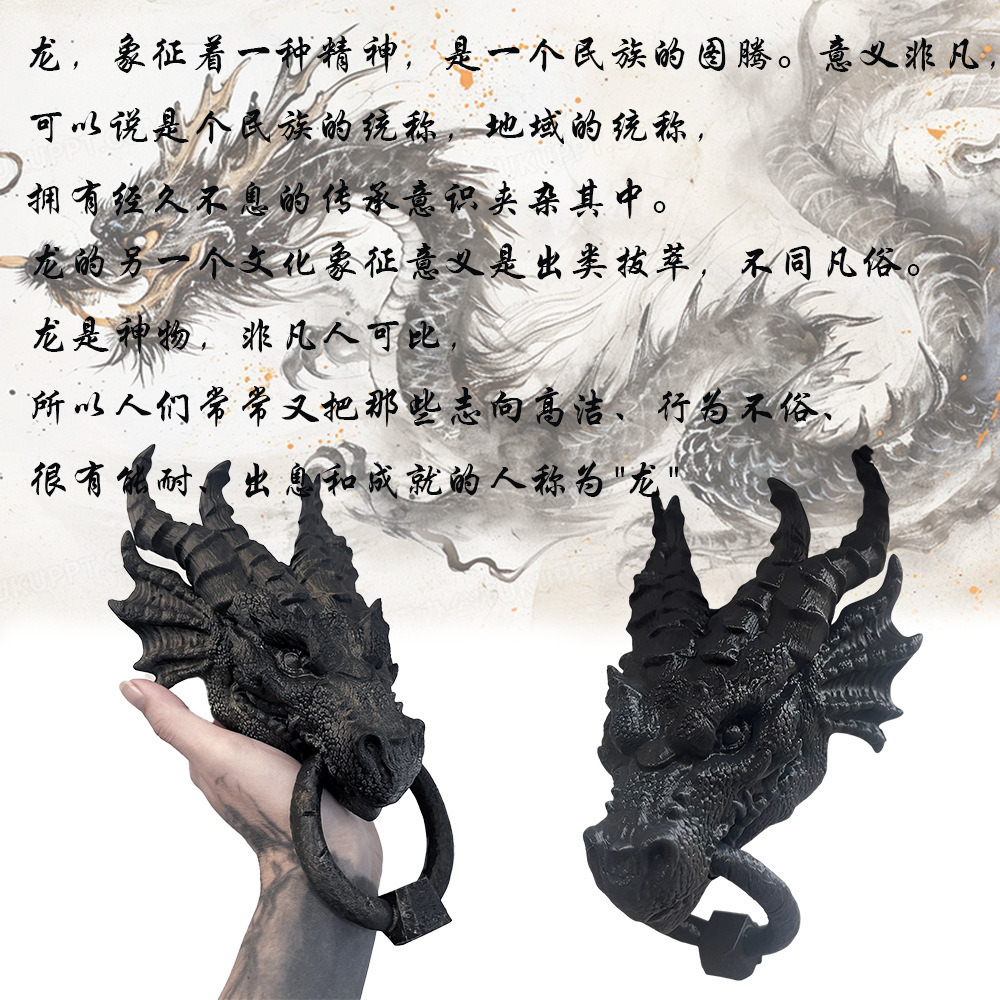 龙，象征着一种精神，是一个民族的图腾。意义非凡，
可以说是个民族的统称，地域的统称，
拥有经久不息的传承意识夹杂其中。
龙的另一个文化象征意义是出类拔萃，不同凡俗。
龙是神物，非凡人可比，
所以人们常常又把那些志向高洁、行为不俗、
很有能耐、出息和成就的人称为"龙"